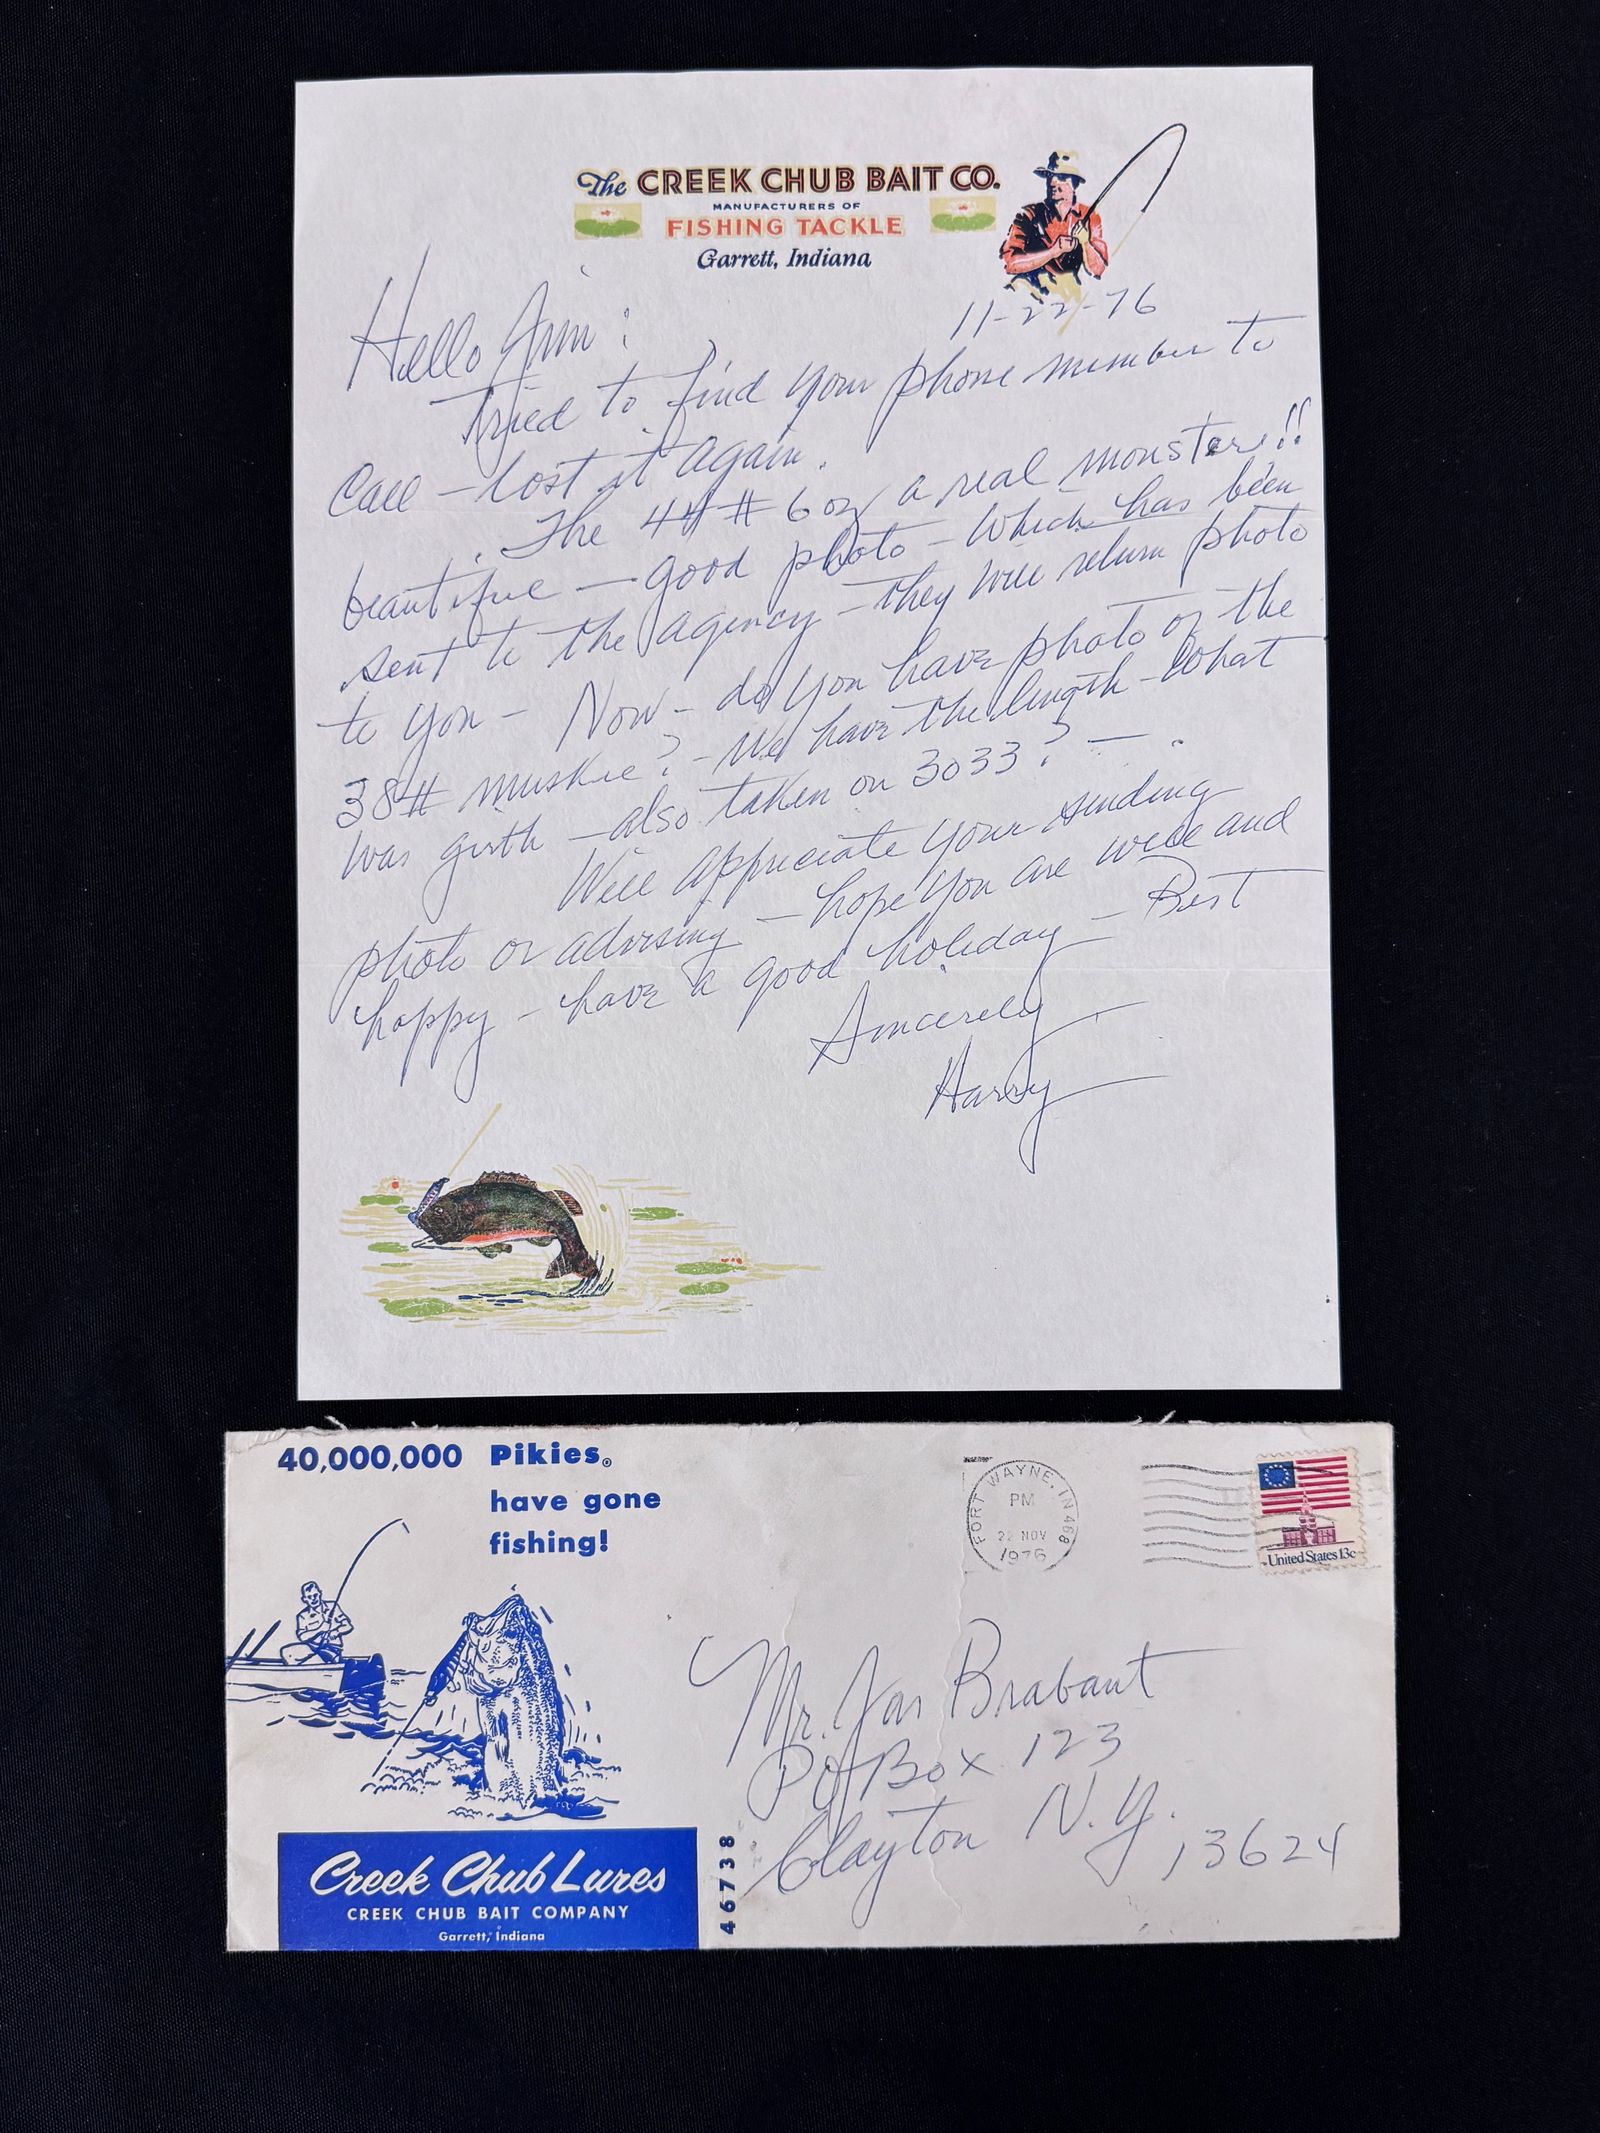 The CREEK CHUB BAIT CO.
MANUFACTURERS OF
FISHING TACKLE
Garrett, Indiana
11-22-76
Hello Jim:
Tried to find your phone number to
Call - lost it again.
The 44# 6 oz a real monster!!
beautiful - good photo - which has been
sent to the agency - they will return photo
to you - Now - do you have photo of the
38# muskie? - We have the length - What
was girth - also taken on 3033? -
Will appreciate your sending
photo or advising - hope you are well and
happy - have a good holiday - Best
Sincerely
Harry
40,000,000 Pikies®
have gone
fishing!
FORT WAYNE, IN 468
PM
22 NOV
1976
United States 13c
Mr. Jas Brabant
PO Box 123
Clayton N.Y.
13624
Creek Chub Lures
CREEK CHUB BAIT COMPANY
Garrett, Indiana
46738